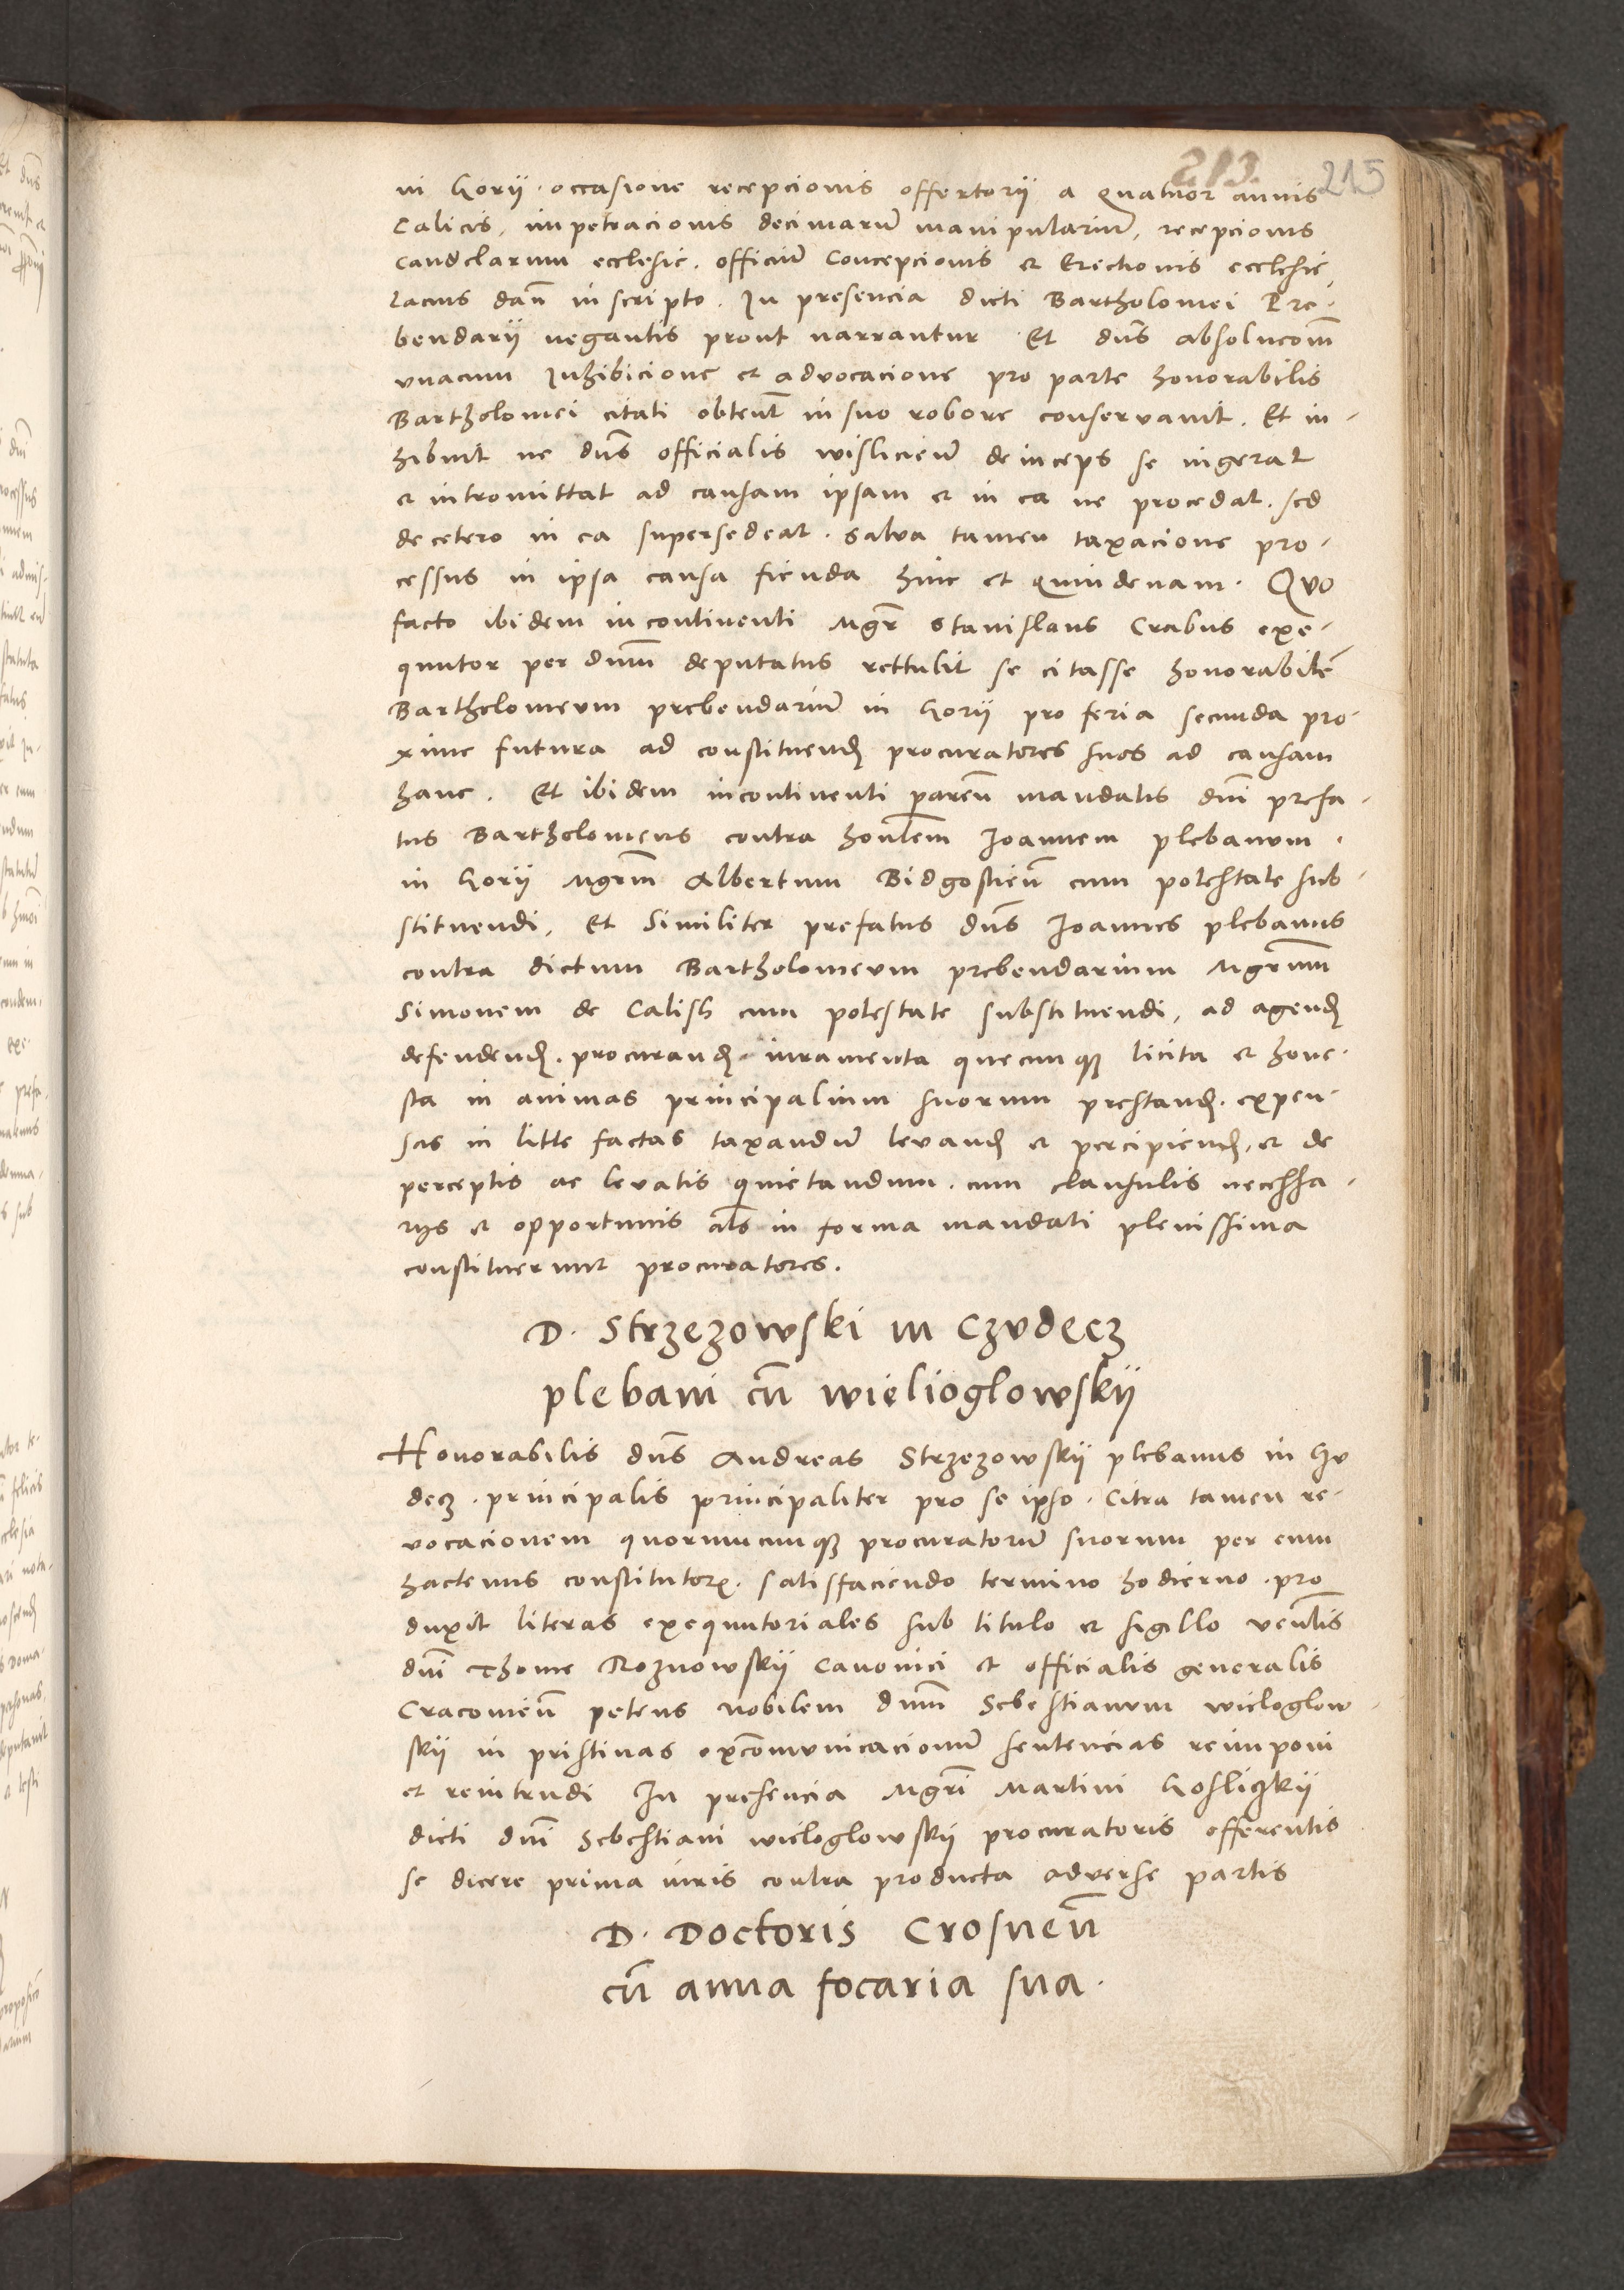 213. 215
in Gorii. occasione recepcionis offertorii a quatuor annis
Calicis, impetracionis decimarum̄ manipularium̄, recepcionis
candelarum ecclesie. officium̄ Concepcionis et Erectionis ecclesie
lacius dan̄ in scripto. In presencia dicti Bartholomei Pre-
bendarii negantis prout narrantur Et dn̄s absolucom̄
vnacum Inhibicione et advocacione pro parte honorabilis
Bartholomei citati obtent̄ in suo robore conservavit. Et in-
hibuit ne dn̄s officialis wislicien̄ deinceps se ingerat
et intromittat ad causam ipsam et in ea ne procedat. sed
de cetero in ea supersedeat. salva tamen taxacione pro-
cessus in ipsa causa fienda hinc et quindenam. Quo
facto ibidem incontinenti Mgr̄ Stanislaus Crabus exe-
quutor per dnm̄ deputatus rettulit se citasse honorabilē
Bartholomeum prebendarium̄ in Gorii pro feria secunda pro-
xime futura ad constituend̄ procuratores suos ad causam
hanc. Et ibidem incontinenti paren̄ mandatis dn̄i prefa-
tus Bartholomeus contra honlem̄ Joannem plebanum.
in Gorii Mgrm̄ Albertum Bidgostien̄ cum potestate sub-
stituendi, Et Similiter prefatus dn̄s Joannes plebanus
contra dictum Bartholomeum prebendarium Mgrum̄
Simonem de Calish cum potestate substituendi, ad agend̄
defendend̄. procurand̄. iuramenta quecunqꝫ licita et hone-
sta in animas principalium suorum prestand̄. expen-
sas in litte factas taxandum̄ levand̄ et percipiend̄, et de
perceptis ac levatis quietandum. cum clausulis necessa-
riis et opportunis als̄ in forma mandati plenissima
constituerunt procuratores.
D. Strzezowski in Czudecz
plebani cū wielioglowskii
Honorabilis dn̄s Andreas Strzezowskii plebanus in Czu
decz. principalis principaliter pro se ipso. Citra tamen re-
vocacionem quorumcunqꝫ procuratorum̄ suorum per eum
hactenus constitutorꝝ. satisfaciendo termino hodierno. pro
duxit literas exequutoriales sub titulo et sigillo venlis̄
dn̄i Thome Roznowskii Canonici et officialis generalis
Cracovien̄ petens nobilem dnm̄ Sebestianum wieloglow-
skii in pristinas excōmunicacionum̄ sentencias reimponi
et reintrudi In presencia Mgrī Martini Goslicskii
dicti dn̄i Sebestiani wieloglowskii procuratoris offerentis
se dicere prima iuris contra producta adverse partis
D. Doctoris Crosnen̄
cū anna focaria sua.